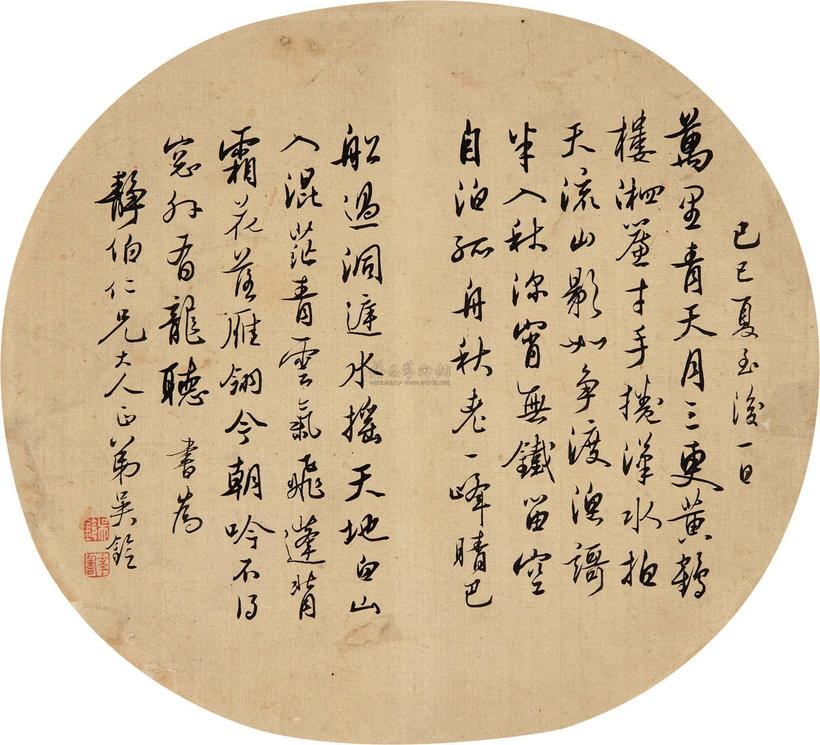 己巳夏至後一日
萬里青天月三更黃鶴
樓湘簾才手捲漢水拍
天流山影如爭渡漁謌
半入秋深宵無鐵笛空
自泊孤舟秋老一峰晴巴
船過洞庭水搖天地白山
入混茫青雲氣飛蓬背
霜花落雁翎今朝吟不得
窓外有龍聽 書爲
靜伯仁兄大人正弟吳